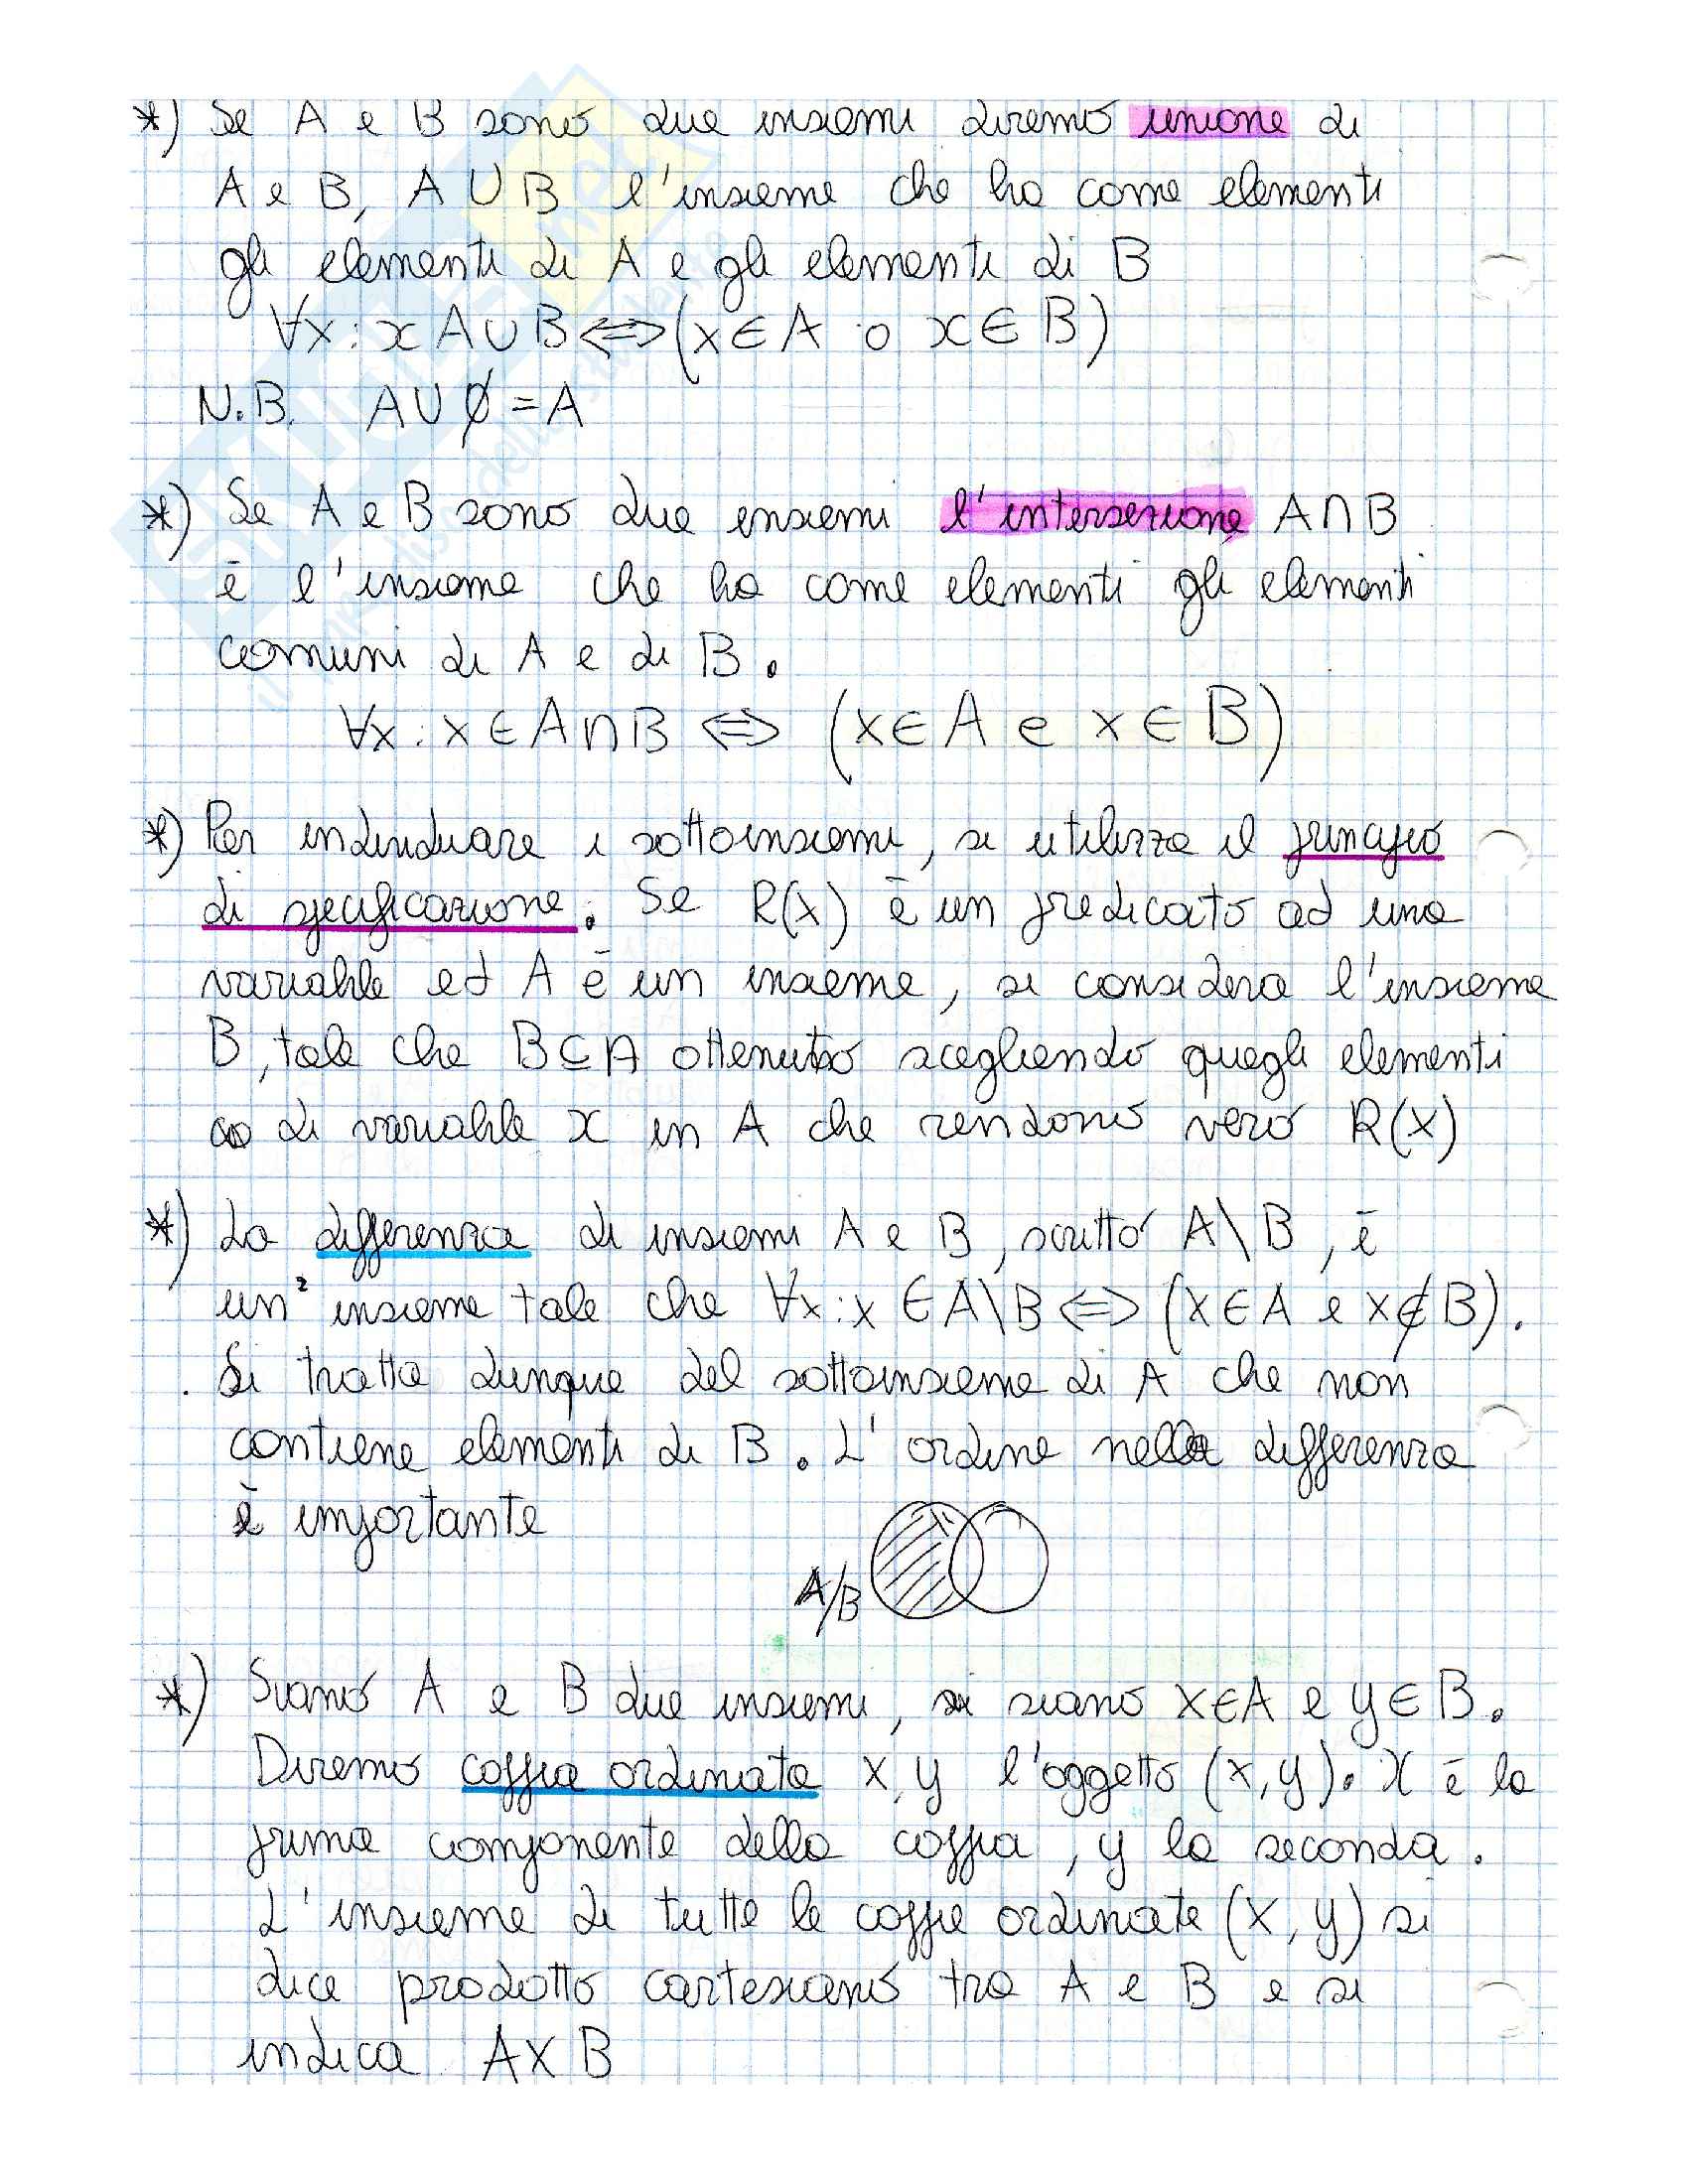 *) Se A e B sono due insiemi diremo unione di
A e B, A ∪ B l'insieme che ha come elementi
gli elementi di A e gli elementi di B
∀x : x A ∪ B ⟺ (x ∈ A o x ∈ B)
N.B. A ∪ ∅ = A
*) Se A e B sono due insiemi l'intersezione A ∩ B
è l'insieme che ha come elementi gli elementi
comuni di A e di B.
∀x : x ∈ A ∩ B ⟺ (x ∈ A e x ∈ B)
*) Per individuare i sottoinsiemi, si utilizza il principio
di specificazione. Se R(x) è un predicato ad una
variabile ed A è un insieme, si considera l'insieme
B, tale che B ⊆ A ottenuto scegliendo quegli elementi
di variabile x in A che rendono vero R(x)
*) La differenza di insiemi A e B, scritto A \ B, è
un insieme tale che ∀x : x ∈ A \ B ⟺ (x ∈ A e x ∉ B).
Si tratta dunque del sottoinsieme di A che non
contiene elementi di B. L'ordine nella differenza
è importante
A/B
*) Siano A e B due insiemi, si siano x ∈ A e y ∈ B.
Diremo coppia ordinata x, y l'oggetto (x, y). x è la
prima componente della coppia, y la seconda.
L'insieme di tutte le coppie ordinate (x, y) si
dice prodotto cartesiano tra A e B e si
indica A X B